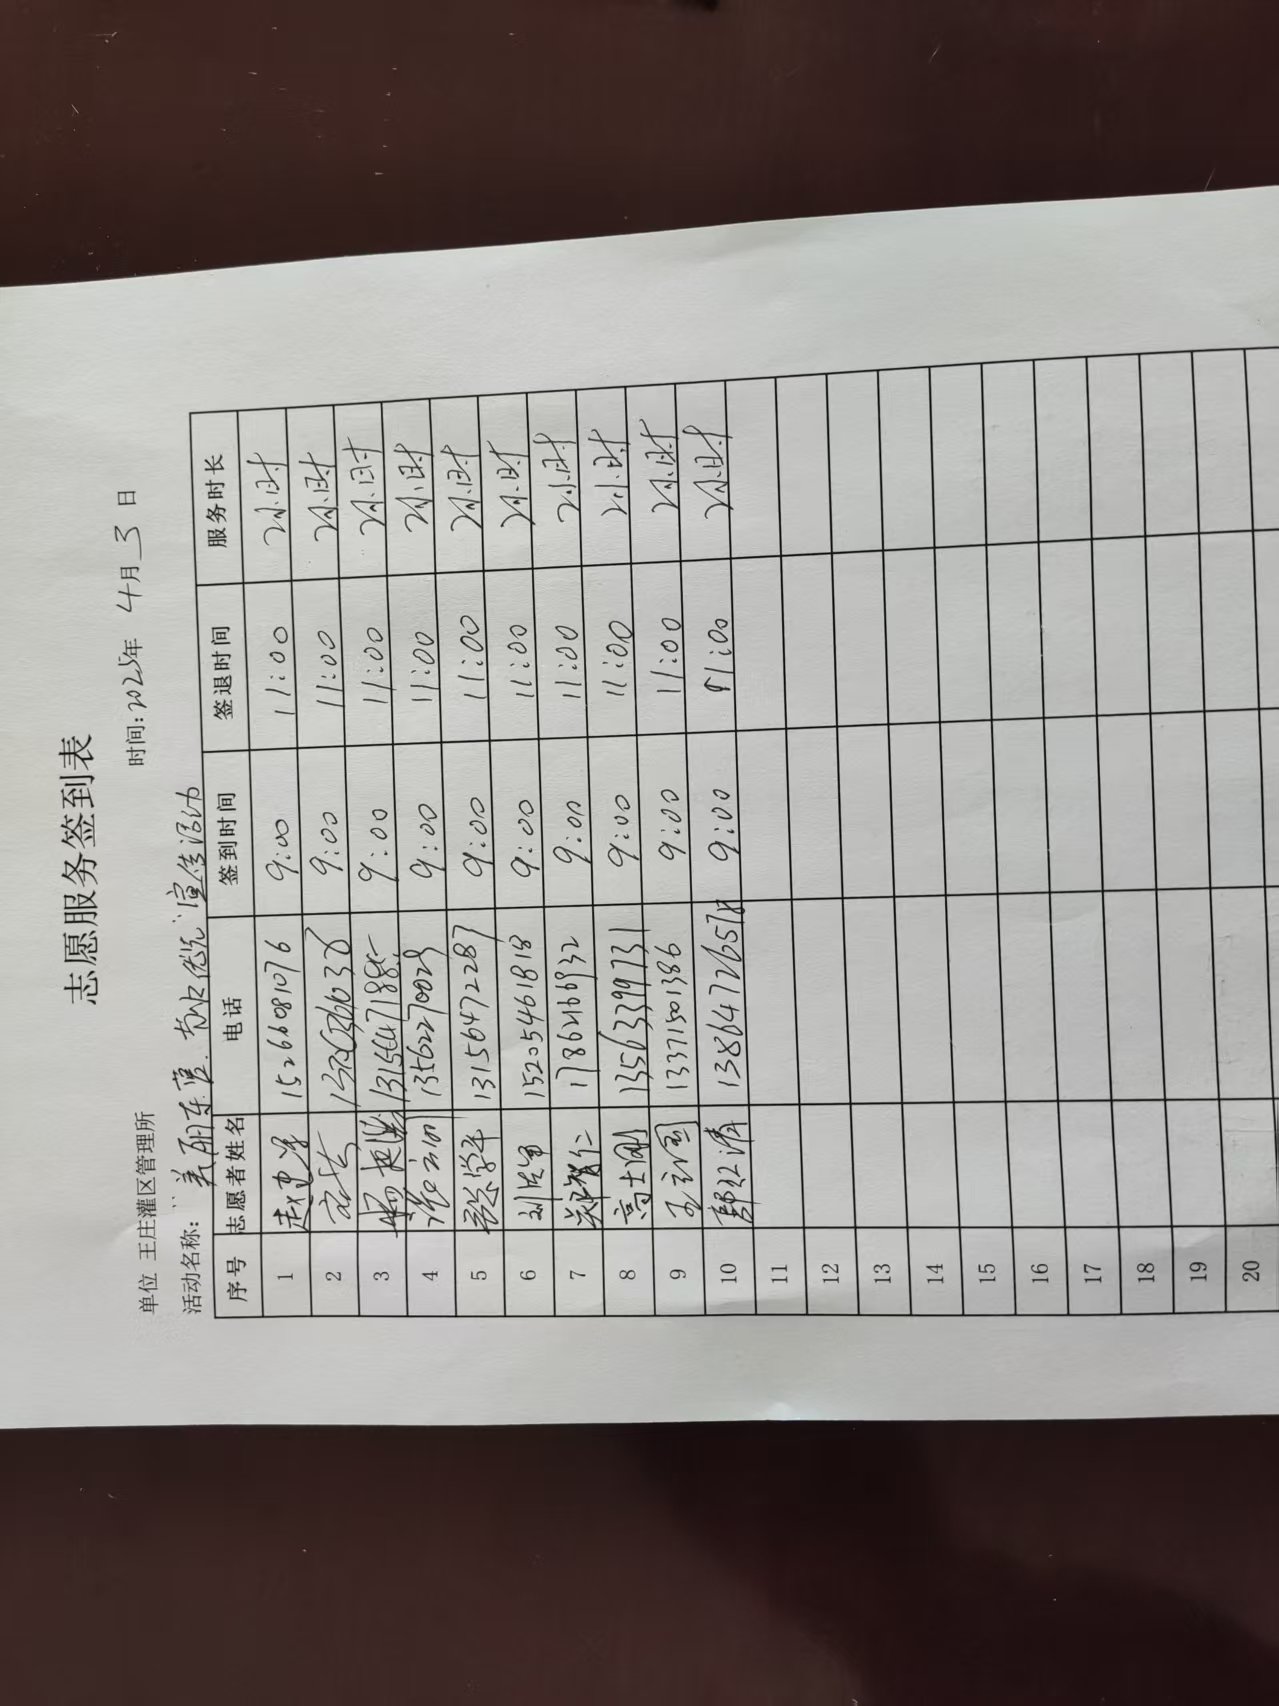 志愿服务签到表
单位 王庄灌区管理所 时间:2025年 4月 3 日
活动名称: "美丽东营 节水优先"宣传活动
序号 志愿者姓名 电话 签到时间 签退时间 服务时长
1 15266081076 9:00 11:00 2小时
2 9:00 11:00 2小时
3 9:00 11:00 2小时
4 13562270029 9:00 11:00 2小时
5 13156472287 9:00 11:00 2小时
6 15205461818 9:00 11:00 2小时
7 郑智仁 17862166932 9:00 11:00 2小时
8 高士刚 13563399731 9:00 11:00 2小时
9 王立国 13371501386 9:00 11:00 2小时
10 9:00 11:00 2小时
11
12
13
14
15
16
17
18
19
20